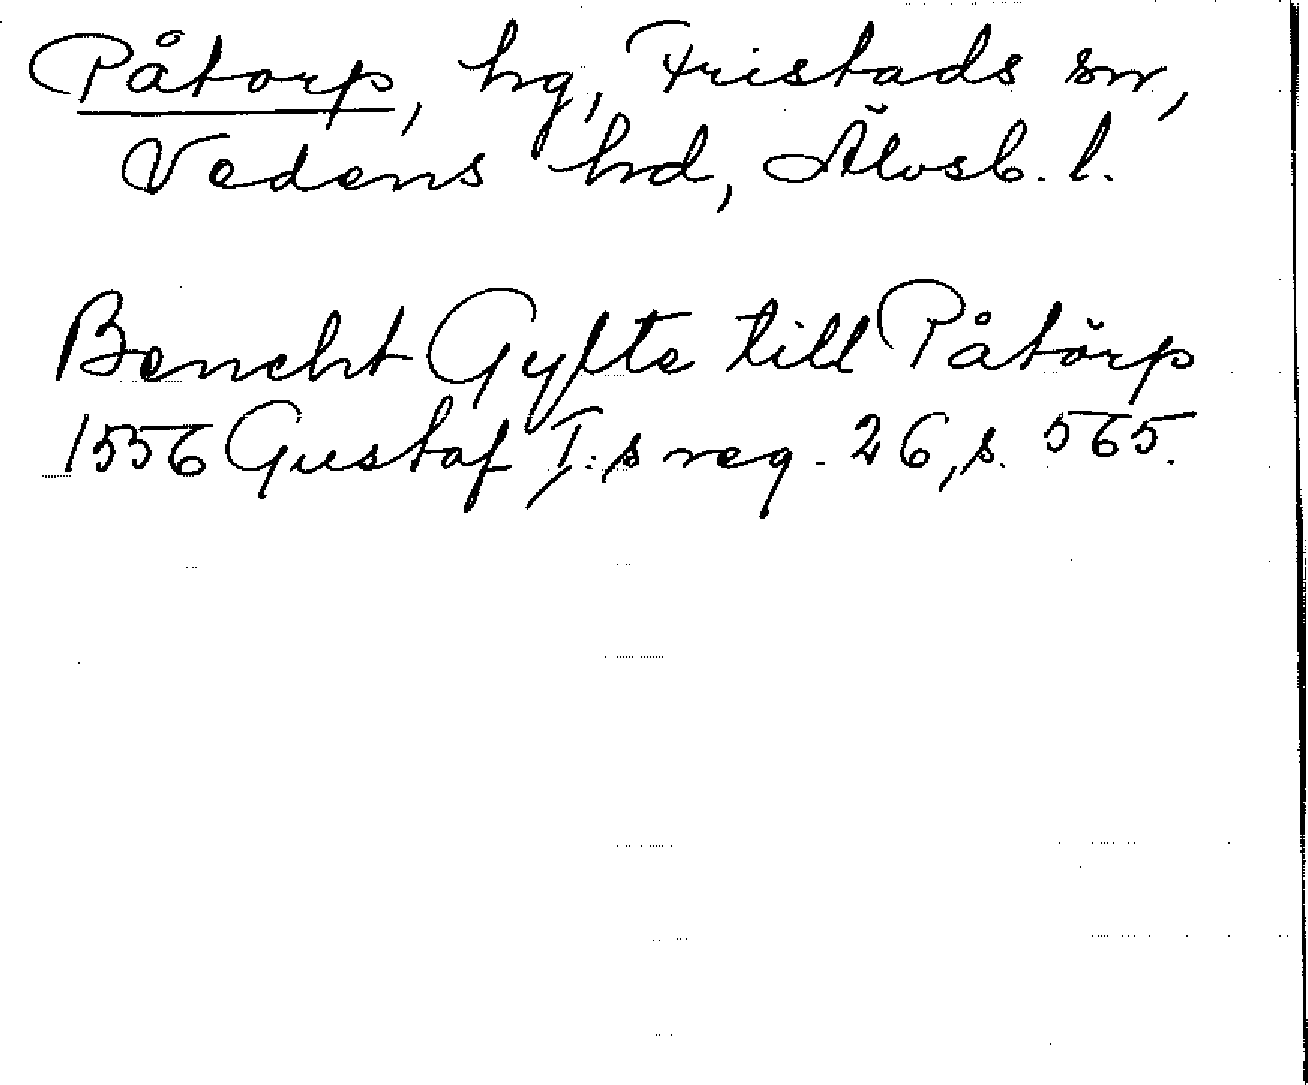 Påtorp, hg, Fristads sn,
Vedens hd, Älvsb. l.
Bencht Gyfte till Påtörp
1556 Gustaf I:s reg. 26, s. 565.